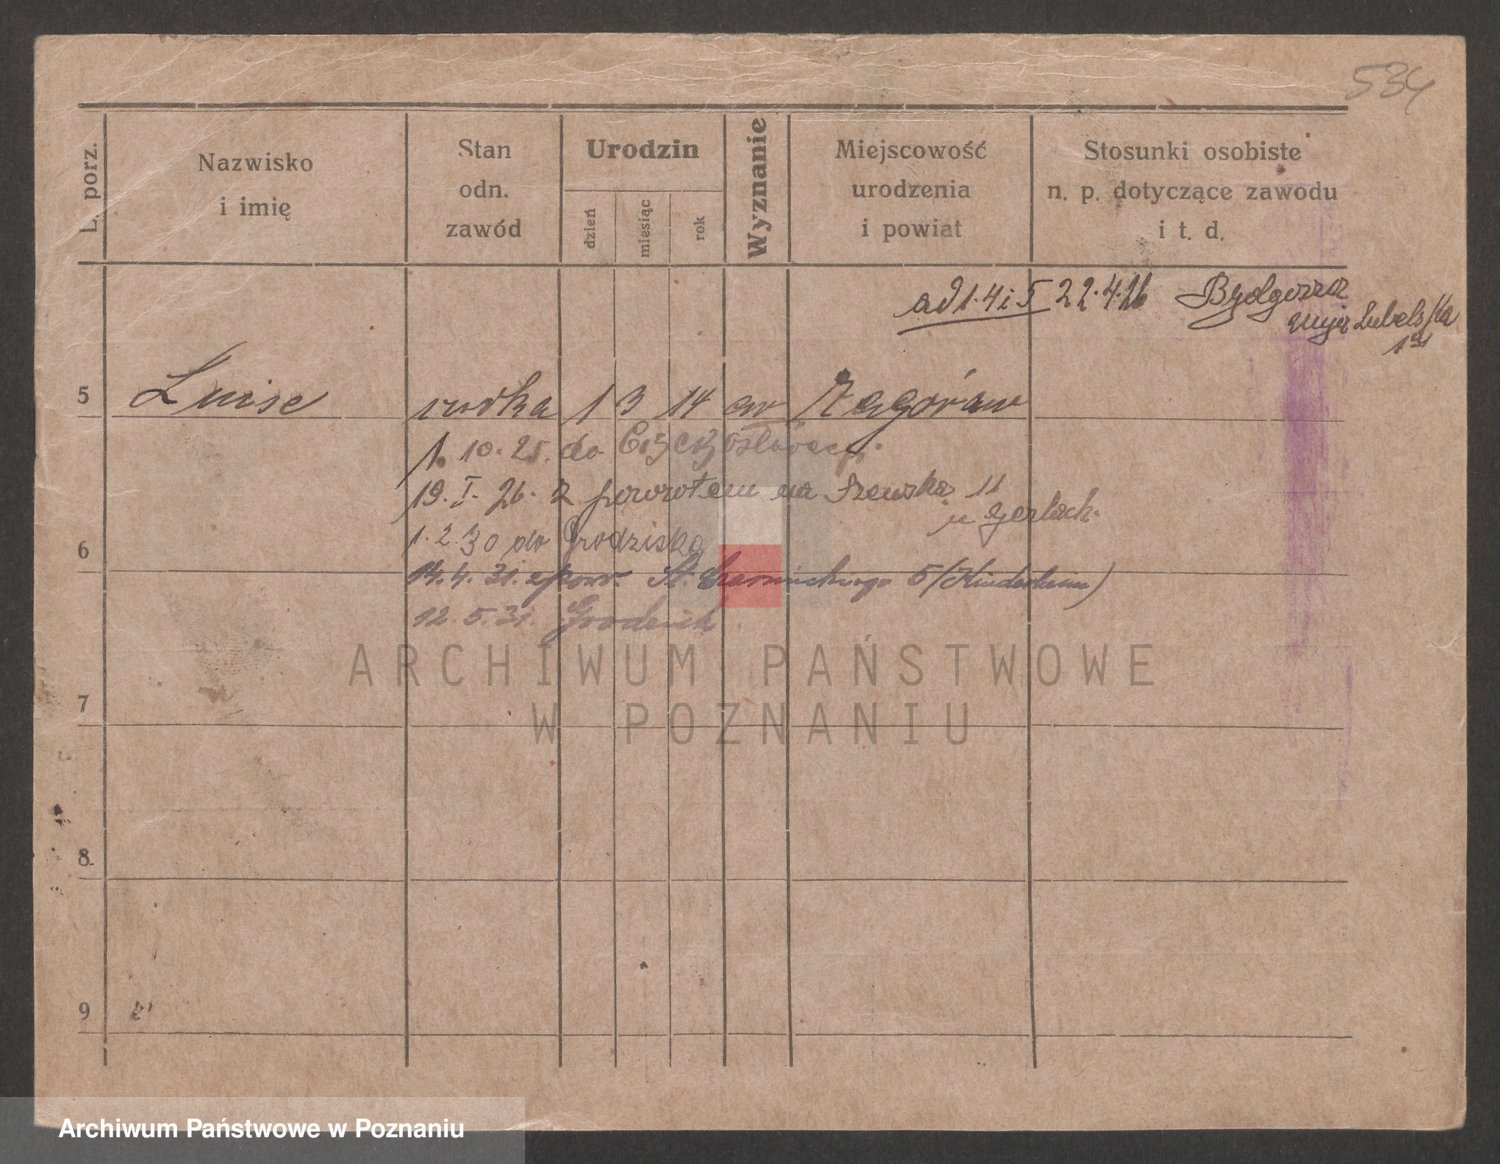 534
L. porz.
Nazwisko
i imię
Stan
odn.
zawód
Urodzin
dzień
miesiąc
rok
Wyznanie
Miejscowość
urodzenia
i powiat
Stosunki osobiste
n. p. dotyczące zawodu
i t. d.
ad 1. 4 i 5 22.4.26 Bydgoszcz
Lubelska
5 Luise córka 1 3 14 ew Zagórów
1. 10. 25. do
19. I. 26. z powrotem na Szewską 11
u Gerlach.
1. 2. 30 do Grodziska
6
14. 4. 31. z pow. St. 5 (Kinderheim)
12. 5. 31.
ARCHIWUM PAŃSTWOWE
W POZNANIU
7
8.
9
Archiwum Państwowe w Poznaniu